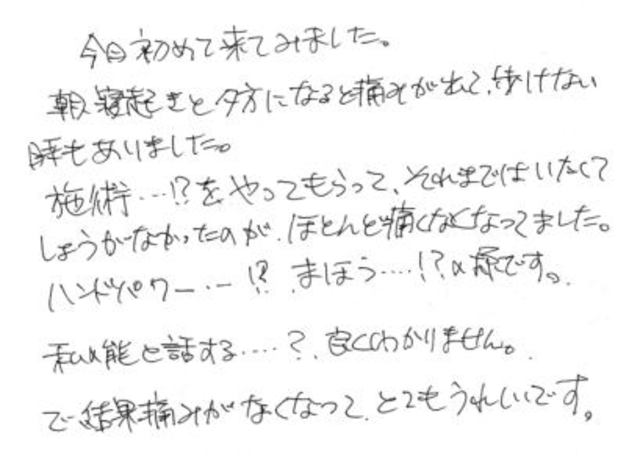 今日初めて来てみました。
朝、寝起きと夕方になると痛みが出て、歩けない
時もありました。
施術…!?をやってもらって、それまではいたくて
しょうがなかったのが、ほとんど痛くなくなってました。
ハンドパワー…!? まほう…!?の様です。
と話する……?、良くわかりません。
で結果痛みがなくなって、とてもうれしいです。